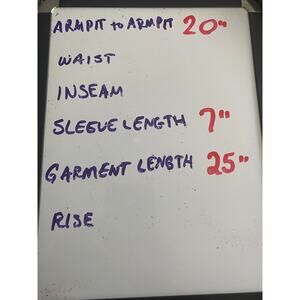 ARMPIT to ARMPIT 20"
WAIST
INSEAM
SLEEVE LENGTH 7"
GARMENT LENGTH 25"
RISE